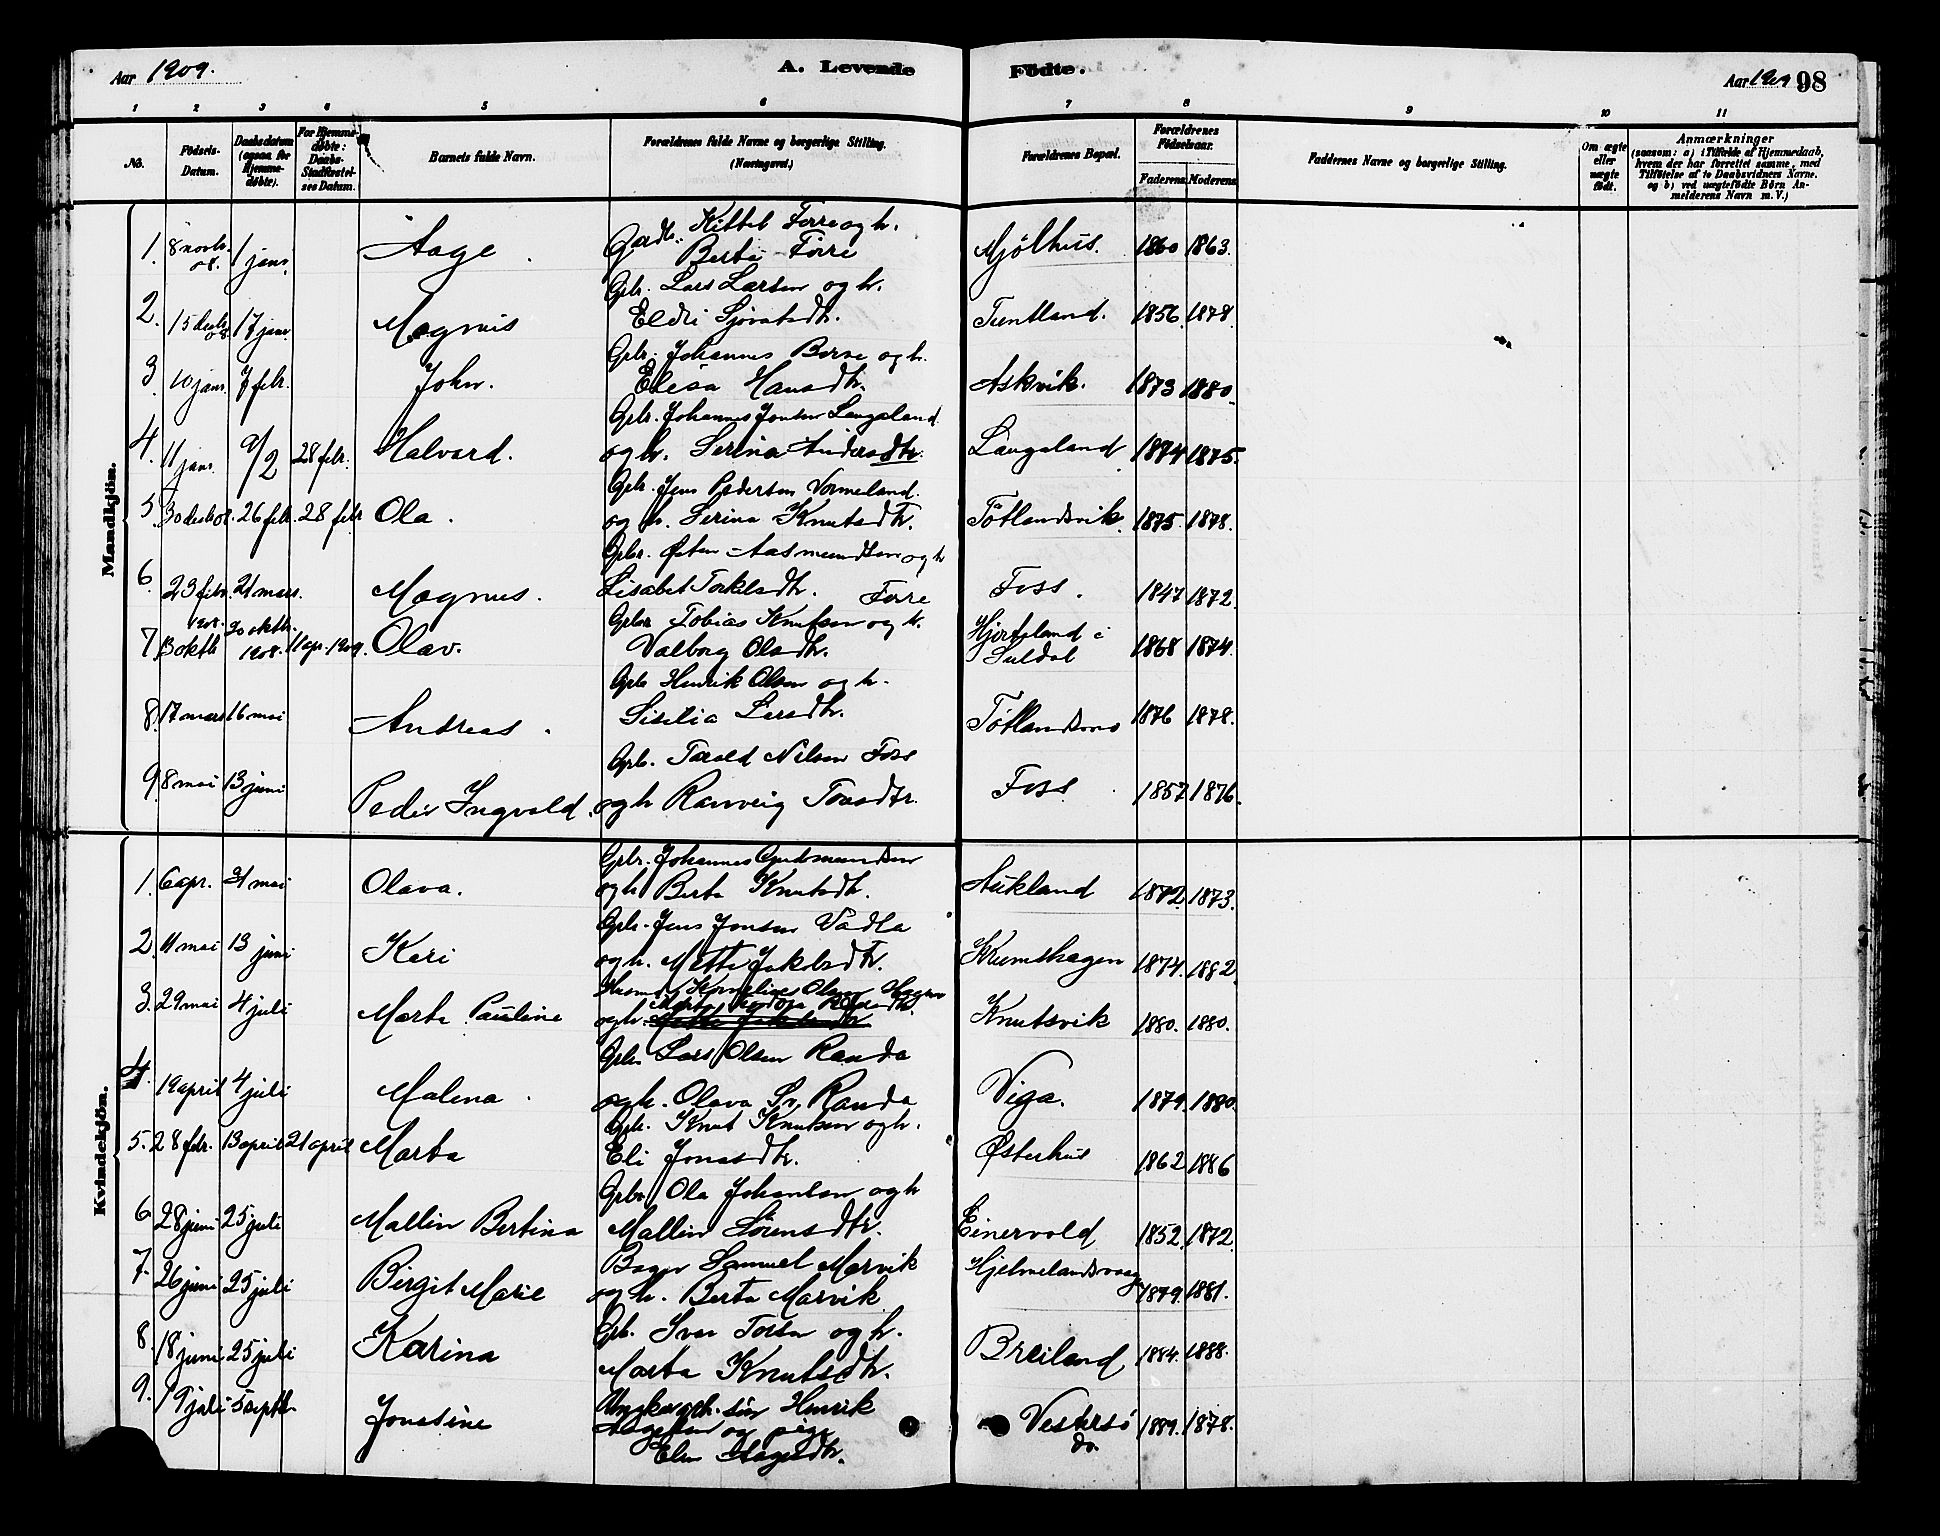 Aar 1909.
A. Levende Födte.
Aar 1909 98
1 2 3 4 5 6 7 8 9 10 11
No.
Födsels-
Datum.
Daabsdatum
(ogsaa for
Hjemme-
døbte).
For Hjemme-
døbte:
Daabs-
Stadfæstel-
ses Datum.
Barnets fulde Navn.
Forældrenes fulde Navne og borgerlige Stilling.
(Næringsvei.)
Forældrenes Bopæl.
Forældrenes
Födselsaar.
Faderens. Moderens.
Faddernes Navne og borgerlige Stilling.
Om ægte
eller
uægte
födt.
Anmærkninger
(saasom: a) i Tilfælde af Hjemmedaab,
hvem der har forrettet samme, med
Tilföielse af to Daabsvidners Navne.
og b) ved uægtefödte Börn An-
melderens Navn m. V.)
Mandkjön.
1. 8 novb. 08. 1 janr. Aage. Kittel Førre og h. Berta Førre Mjølhus. 1860 1863.
2. 15 decbr 08. 17 janr. Magnus Gbr. Lars Larsen og h. Eldri Sjovatsdtr. Tuntland. 1856. 1878.
3. 10 janr. 7 febr. John. Gbr. Johannes Børse og h. Elisa Hansdtr. Askvik. 1873 1880.
4. 11 janr. 9/2 28 febr. Halvard. Gbr. Johannes Jonsen Laugaland og h. Serina Andersdtr. Laugaland 1874 1875.
5. 30 decbr 08. 26 febr. 28 febr Ola. Gbr. Jens Pedersen Vormeland. og h. Serina Knutsdtr. Tøtlandsvik. 1875. 1878.
6. 23 febr. 21 mars. Magnus. Gbr. Østen Aasmundsen og h Lisabet Torkelsdtr. Førre Foss. 1847 1872.
7. 13 oktb 1908. 30 oktbr. 1908. 11 apr. 1909. Olav. Gbr Tobias Knutsen og h. Valborg Olsdtr. Hjorteland i Suldal 1868 1874.
8. 17 mars 16 mai Andreas. Gbr Henrik Olsen og h. Sisilia Larsdtr. Tøtlandsmo 1876 1878.
9. 8 mai 13 juni Peder Ingvald. Gbr. Tarald Nilsen Foss og h Ranveig Toresdtr. Foss 1857 1876.
Kvindekjön.
1. 6 apr. 31 mai Olava. Gbr. Johannes Gudmundsen og h Berta Knutsdtr. Aukland 1872. 1873.
2. 11 mai 13 juni Kari Gbr. Jens Jonsen Vadla og h. Mette Jakobsdtr. Krumshagen 1874. 1882.
3. 29 mai 4 juli Marta Pauline Kornelius Olsen og h. Knutsvik 1880. 1880.
4. 19 april 4 juli Malena. Gbr Lars Olsen Randa og h. Olava Randa Viga. 1879. 1880.
5. 28 febr. 13 april 21 april Marta Gbr. Knut Knutsen og h. Eli Jonasdtr. Østerhus 1862 1886
6. 28 juni 25 juli Mallin Bertina Gbr Ola Johansen og h Mallin Sørensdtr. Einervold 1852. 1872.
7. 26 juni 25 juli Birgit Marie Bager Samuel Marvik og h. Berta Marvik Hjelmelandsvaag 1879. 1881.
8. 18 juni 25 juli Karina Gbr. Ivar Torsen og h. Marta Knutsdtr. Breiland 1884. 1888.
9. 19 juli 5 septb. Jonasine Ungkar gbr. søn Henrik Aagesen og pige Elen Aagesdtr. Vestersø do. 1889. 1878.